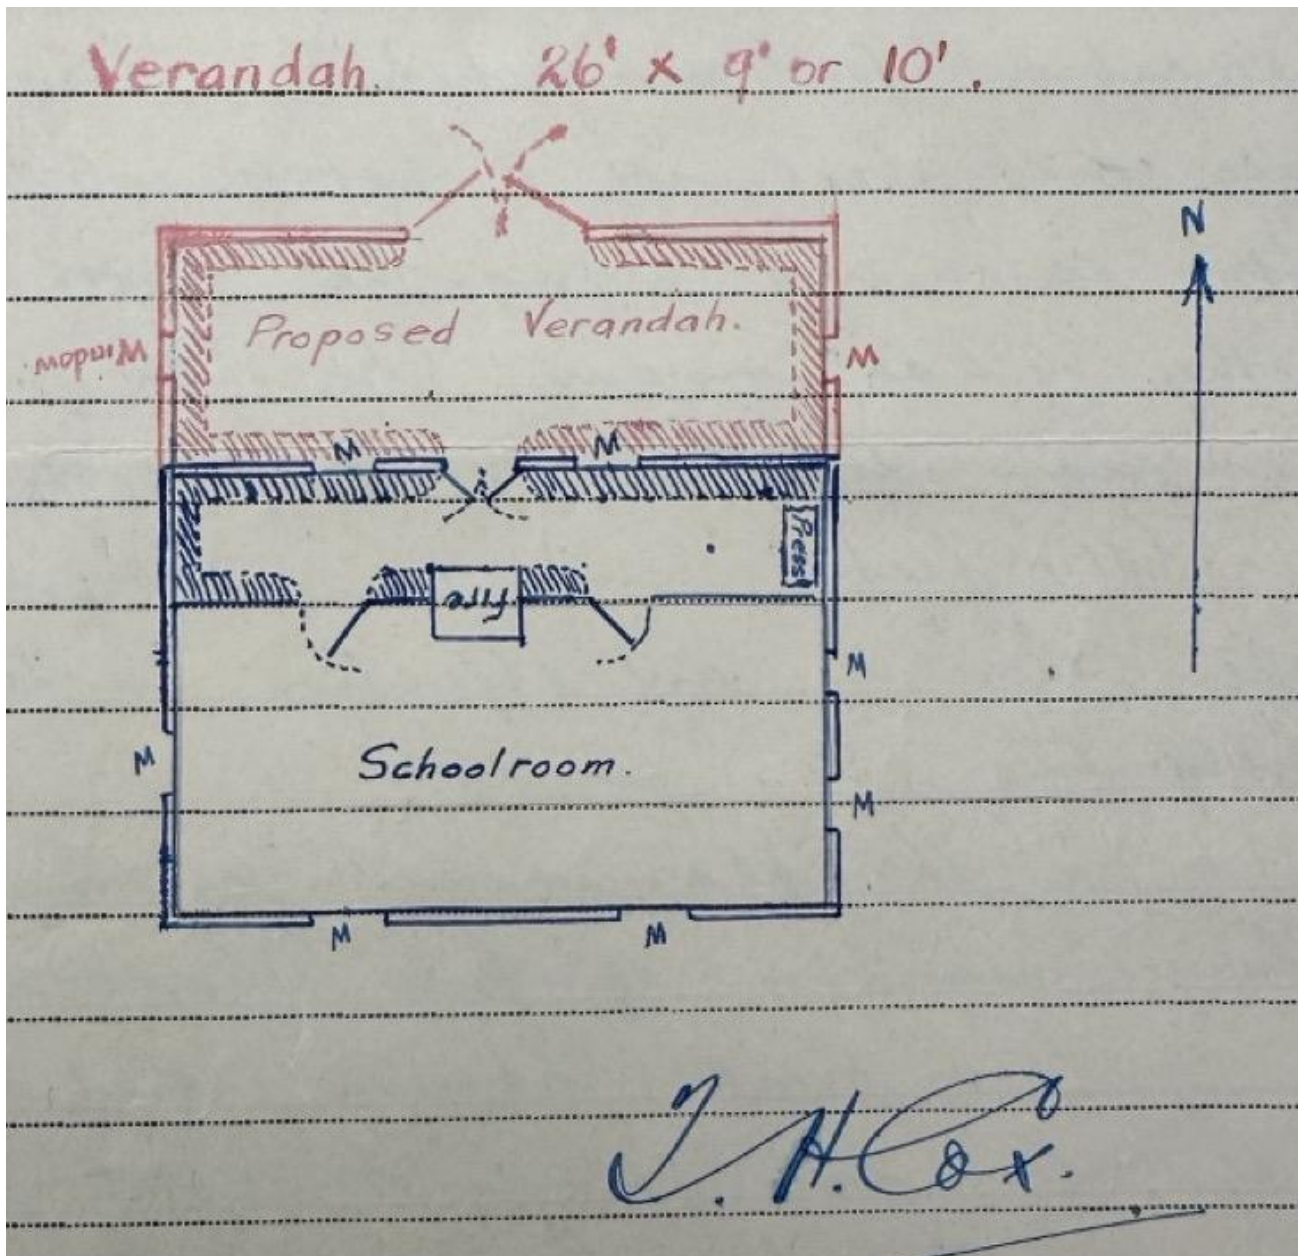 Verandah. 26' x 9' or 10'.
N
Proposed Verandah.
Window
W
W
W
Press
Fire
W
W
Schoolroom.
W
W
W
T. H. Cox.